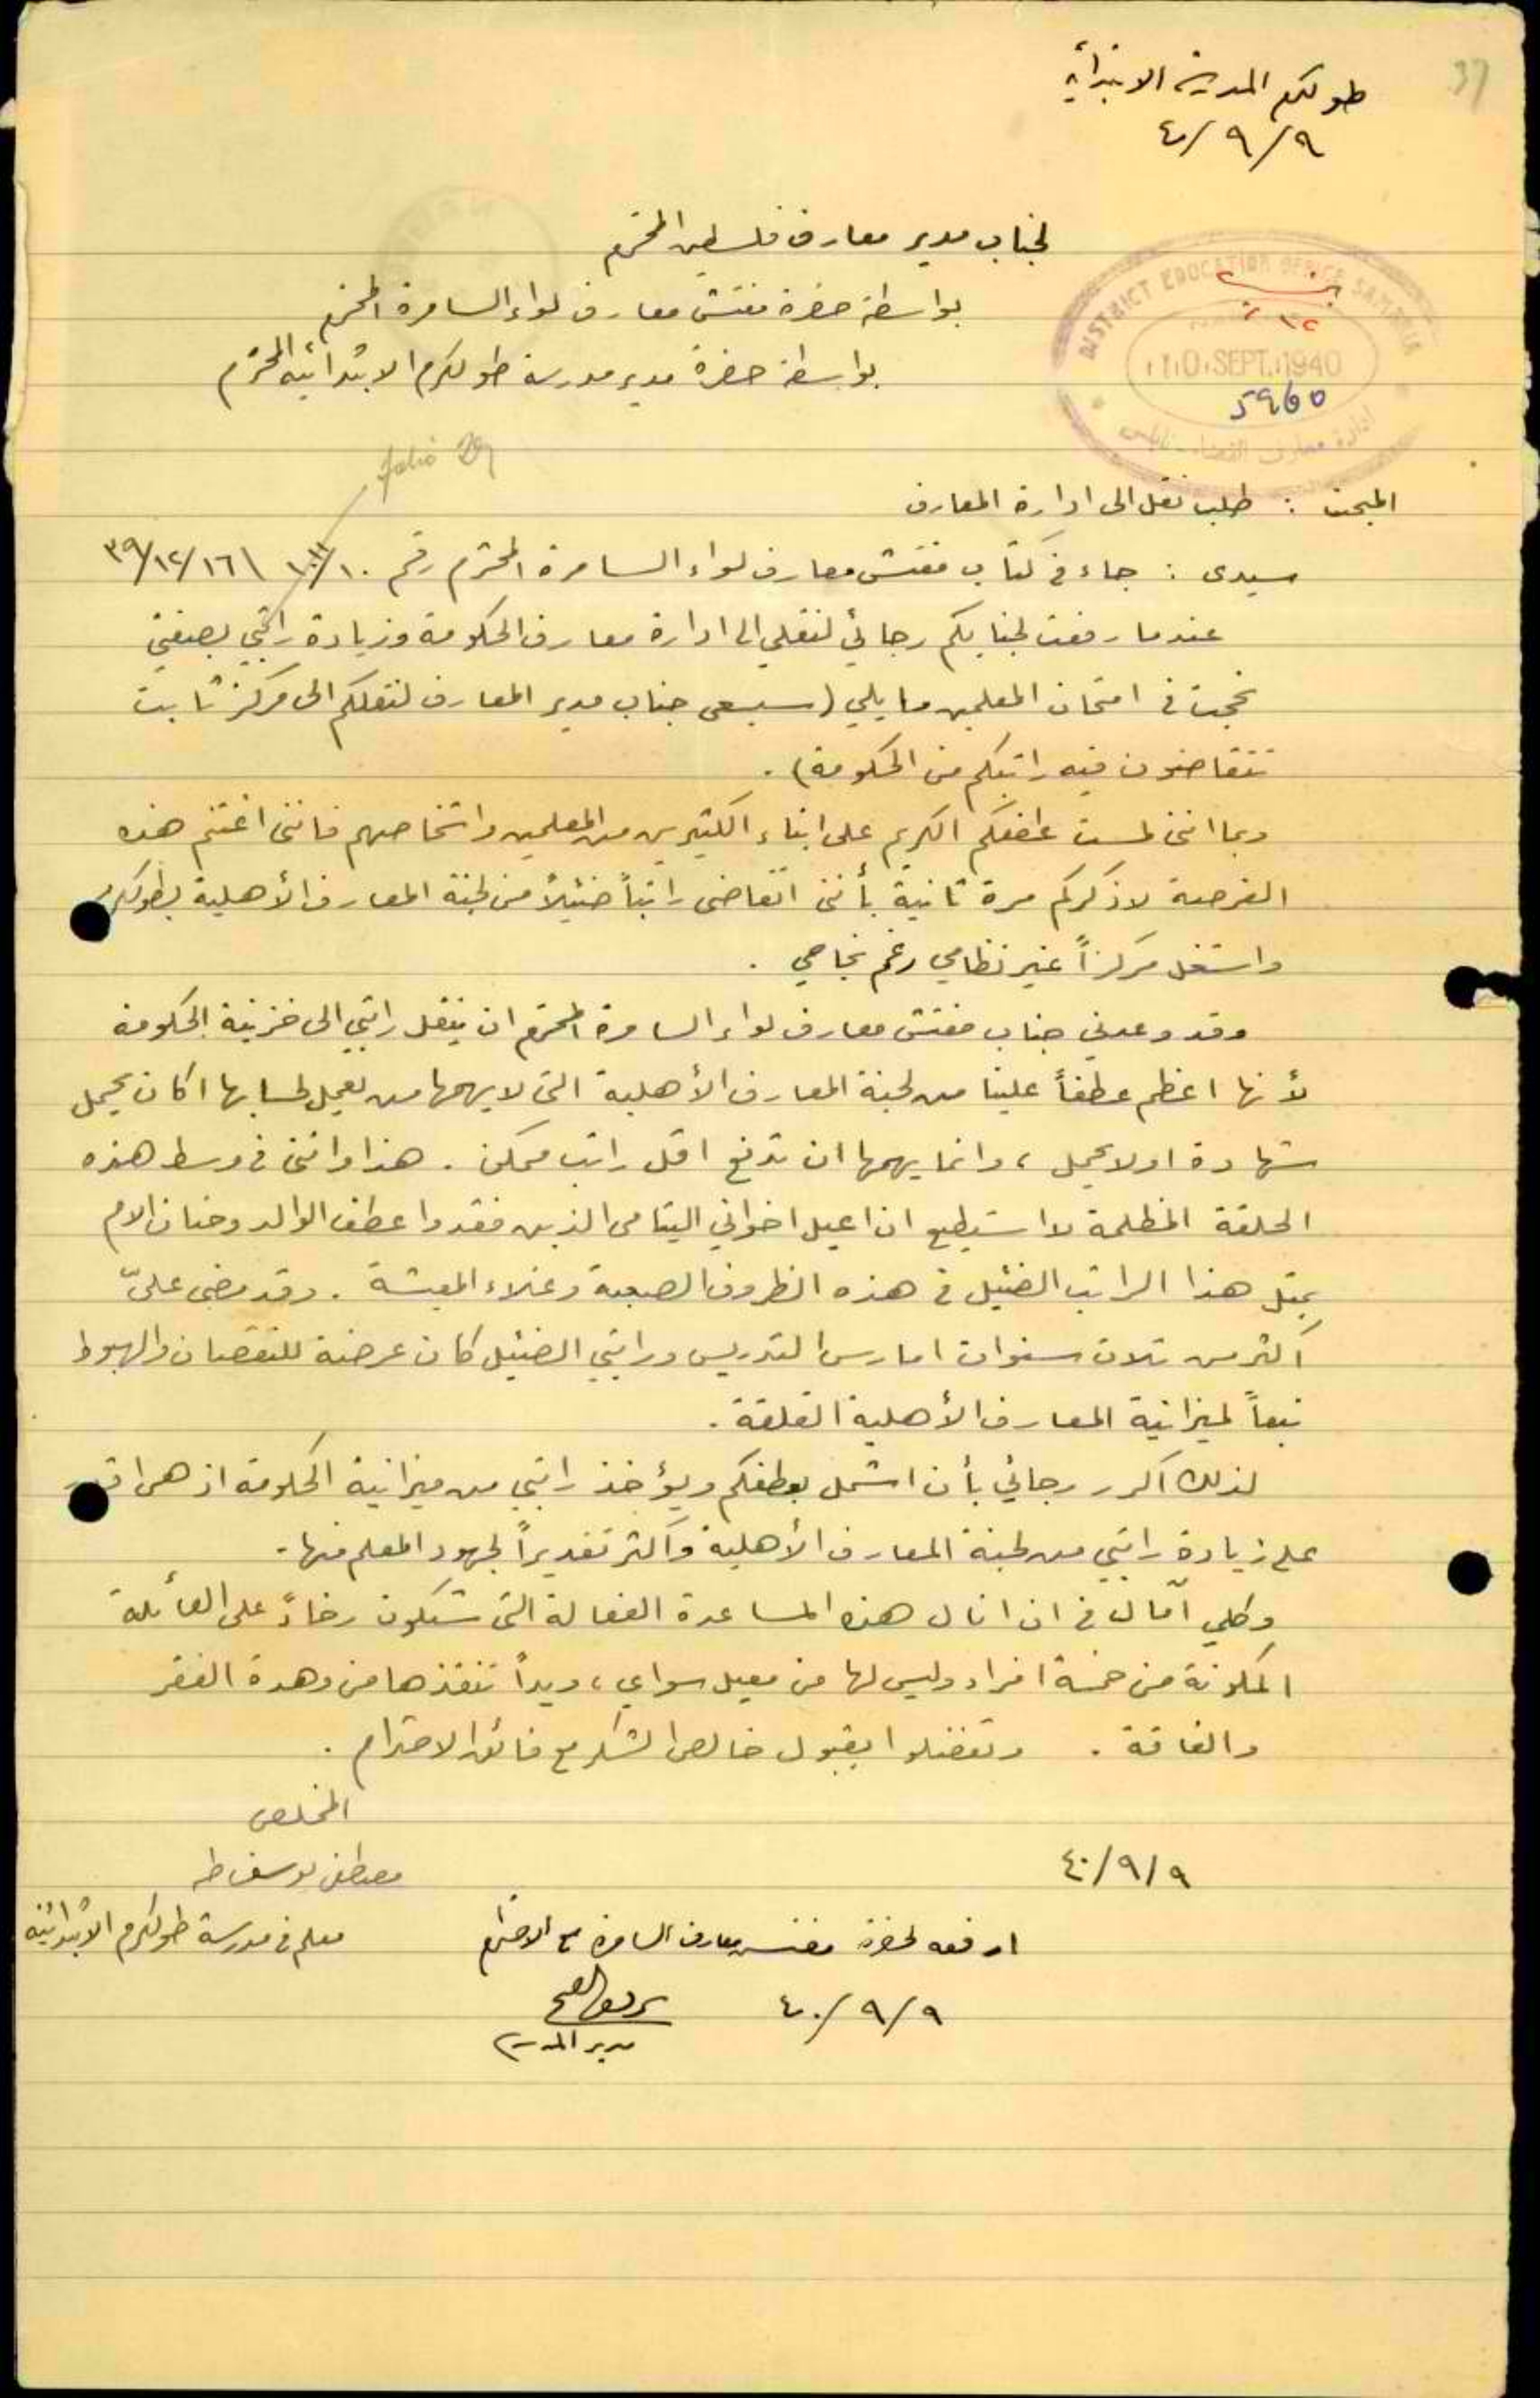 37
طولكرم المدرسة الابتدائية
٤٠/٩/٩
لجناب مدير معارف فلسطين المحترم
بواسطة حضرة مفتش معارف لواء السامرة المحترم
بواسطة حضرة مدير مدرسة طولكرم الابتدائية المحترم
DISTRICT EDUCATION OFFICE SAMARIA
10 SEPT 1940
ادارة معارف القضاء - نابلس
المبحث : طلب نقل الى ادارة المعارف
سيدى : جاء في كتاب مفتش معارف لواء السامرة المحترم رقم ٣٩/١٢/١٦
عندما رفعت لجنابكم رجائي لنقلي الى ادارة معارف الحكومة وزيادة راتبي بصفتي
نجحت في امتحان المعلمين ما يلي (سيسعى جناب مدير المعارف لنقلكم الى مركز ثابت
تتقاضون فيه راتبكم من الحكومة) .
وبما انني لمست عطفكم الكريم على ابناء الكثيرين من المعلمين واشخاصهم فانني اغتنم هذه
الفرصة لاذكركم مرة ثانية بأنني اتقاضى راتباً ضئيلاً من لجنة المعارف الأهلية بطولكرم
واشغل مركزاً غير نظامي رغم نجاحي .
وقد وعدني جناب مفتش معارف لواء السامرة المحترم ان ينقل راتبي الى خزينة الحكومة
لأنها اعظم عطفاً علينا من لجنة المعارف الأهلية التي لا يهمها من يعمل لحسابها اكان يحمل
شهادة او لا يحمل ، وانما يهمها ان تدفع اقل راتب ممكن . هذا وانني في وسط هذه
الحلقة المظلمة لا استطيع ان اعيل اخواني اليتامى الذين فقدوا عطف الوالد وحنان الام
بمثل هذا الراتب الضئيل في هذه الظروف الصعبة وغلاء المعيشة . وقد مضى عليّ
اكثر من ثلاث سنوات امارس التدريس وراتبي الضئيل كان عرضة للنقصان والهبوط
تبعاً لميزانية المعارف الأهلية القلقة .
لذلك اكرر رجائي بأن اشمل بعطفكم ويؤخذ راتبي من ميزانية الحكومة اذ هي اقدر
على زيادة راتبي من لجنة المعارف الأهلية واكثر تقديراً لجهود المعلم منها .
وكلي آمال في ان انال هذه المساعدة الفعالة التي ستكون رخاءً على العائلة
المكونة من خمسة افراد وليس لها من معيل سواي ، ويداً تنقذها من وهدة الفقر
والفاقة . وتفضلوا بقبول خالص الشكر مع فائق الاحترام .
المخلص
٤٠/٩/٩
مصطفى يوسف طه
معلم في مدرسة طولكرم الابتدائية
ارفعه لحضرة مفتش معارف السامرة مع الاحترام
٤٠/٩/٩
مدير المدرسة